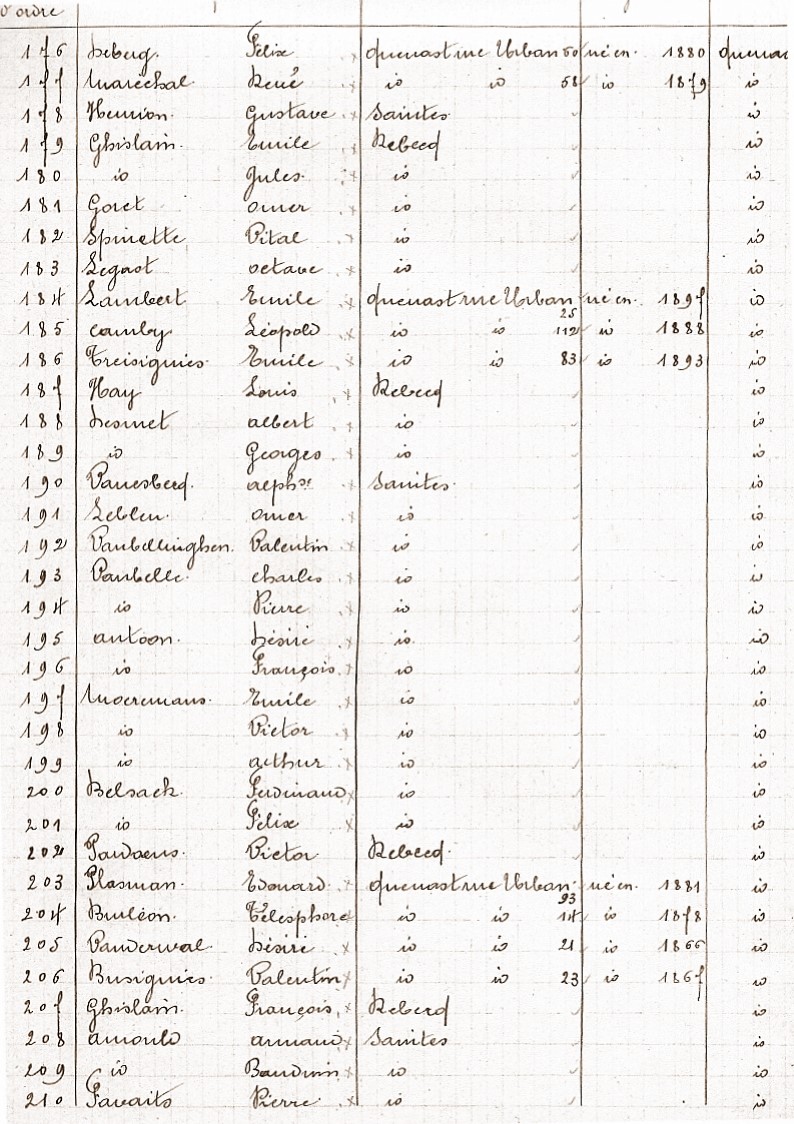 d'ordre
176 Deberg. Félix quenast rue Urban 60 né en. 1880 quenas
177 Maréchal René io io 58 io 1879 io
178 Hennion. Gustave Saintes. io
179 Ghislain. Emile Rebecq io
180 io Jules. io io
181 Goret omer io io
182 Spinette Vital io io
183 Legast octave io io
184 Lambert Emile quenast rue Urban 25 né en. 1897 io
185 camby Léopold io io 112 io 1888 io
186 Treisignies. Emile io io 83 io 1893 io
187 Hay Louis Rebecq io
188 Desmet albert io io
189 io Georges io io
190 Vanesbecq. alphse Saintes. io
191 Lebleu. omer io io
192 Vanbellinghen. Valentin io io
193 Vanbelle. charles io io
194 io Pierre io io
195 antoon. Désiré io. io
196 io François. io io
197 Moeremans. Emile io io
198 io Victor io io
199 io arthur io io
200 Belsack. Ferdinand io io
201 io Félix io io
202 Victor Rebecq. io
203 Plasman. Edouard. quenast rue Urban. 93 né en. 1881 io
204 Builéon. Télesphore io io 14 io 1878 io
205 Vanderwal. Désiré io io 21 io 1866 io
206 Busignies. Valentin io io 23 io 1867 io
207 Ghislain. François. Rebecq io
208 arnould armand Saintes io
209 io Bauduin io io
210 Favaits Pierre. io io